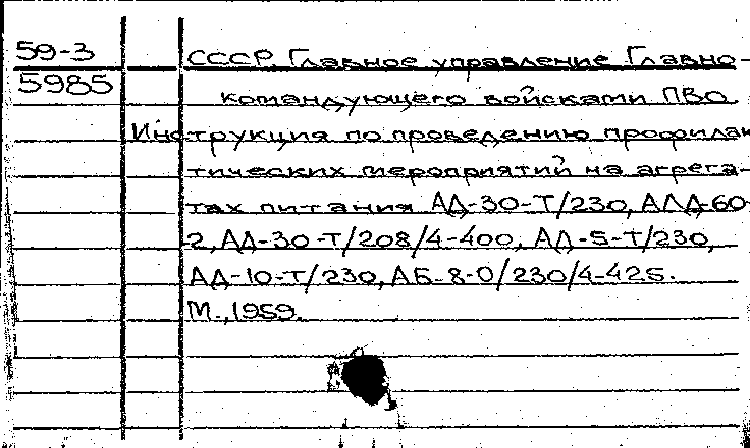 59-3 СССР. Главное управление Главно-
5985
командующего войсками ПВО
Инструкция по проведению профилак
тических мероприятий на агрега-
тах питания АД-30-Т/230, АЛД-60-
2, АД-30-Т/208/4-400, АД-5-Т/230,
АД-10-Т/230, АБ-8-0/230/4-425.
М., 1959.